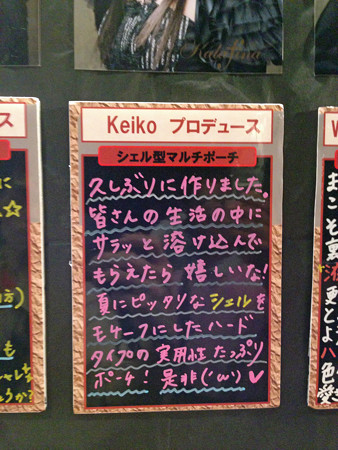 Kalafina
Keiko プロデュース
シェル型マルチポーチ
久しぶりに作りました。
皆さんの生活の中に
サラッと溶け込んで
もらえたら嬉しいな!
夏にピッタリなシェルを
モチーフにしたハード
タイプの実用性たっぷり
ポーチ!是非('ω')♡
ス
に
☆
方)
も
シャレな
ょうか?
お
こ
そ
裏
更
とよ
ハ
色
愛